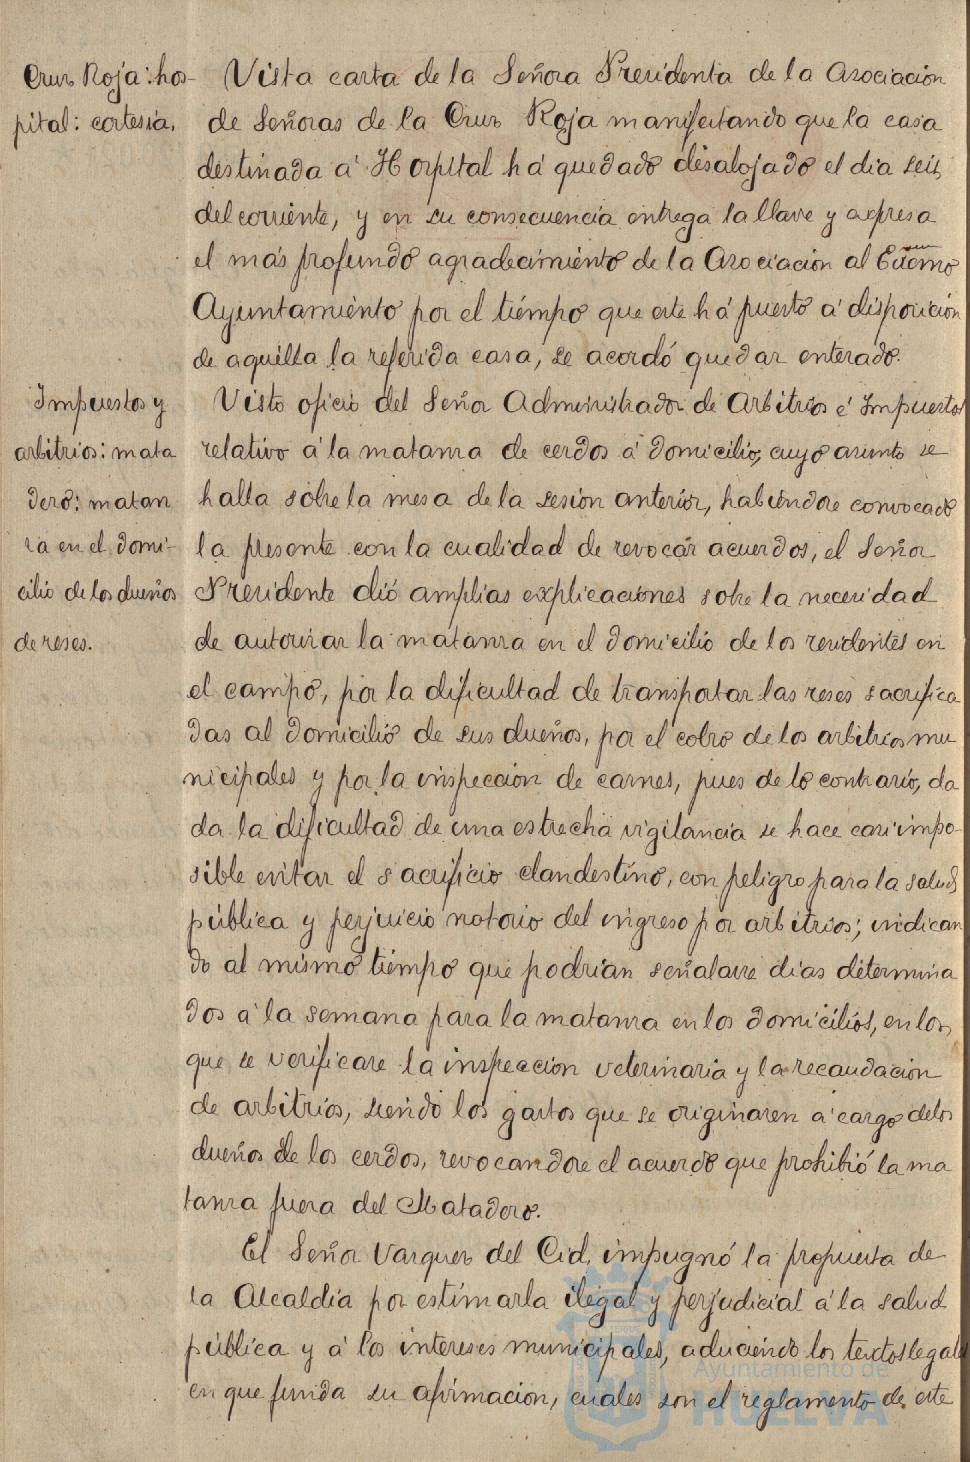 Cruz Roja: hos-
pital: cortesia.
Vista carta de la Señora Presidenta de la Asociación
de Señoras de la Cruz Roja manifestando que la casa
destinada á Hospital há quedado desalojado el dia seis
del corriente, y en su consecuencia entrega la llave y expresa
el más profundo agradecimiento de la Asociación al
Ayuntamiento por el tiempo que este há puesto á disposición
de aquella la referida casa, se acordó quedar enterado.
Impuestos y
arbitrios: mata
dero: matan
za en el domi-
cilio de los dueños
de reses.
Visto oficio del Señor Administrador de Arbitrios é Impuestos
relativo á la matanza de cerdos á domicilio, cuyo asunto se
halla sobre la mesa de la sesión anterior, habiéndose convocado
la presente con la cualidad de revocar acuerdos, el Señor
Presidente dió amplias explicaciones sobre la necesidad
de autorizar la matanza en el domicilio de los residentes en
el campo, por la dificultad de transportar las reses sacrifica
das al domicilio de sus dueños, por el cobro de los arbitrios mu
nicipales y por la inspección de carnes, pues de lo contrario, da
da la dificultad de una estrecha vigilancia se hace casi impo-
sible evitar el sacrificio clandestino, con peligro para la salud
pública y perjuicio notorio del ingreso por arbitrios; indican
do al mismo tiempo que podrían señalarse dias determina
dos á la semana para la matanza en los domicilios, en los
que se verificase la inspección veterinaria y la recaudación
de arbitrios, siendo los gastos que se originasen á cargo de los
dueños de los cerdos, revocandose el acuerdo que prohibió la ma
tanza fuera del Matadero.
El Señor Vazquez del Cid, impugnó la propuesta de
la Alcaldía por estimarla ilegal y perjudicial á la salud
pública y á los intereses municipales, aduciendo los textos legales
en que funda su afirmación, cuales son el reglamento de este
Ayuntamiento de
HUELVA